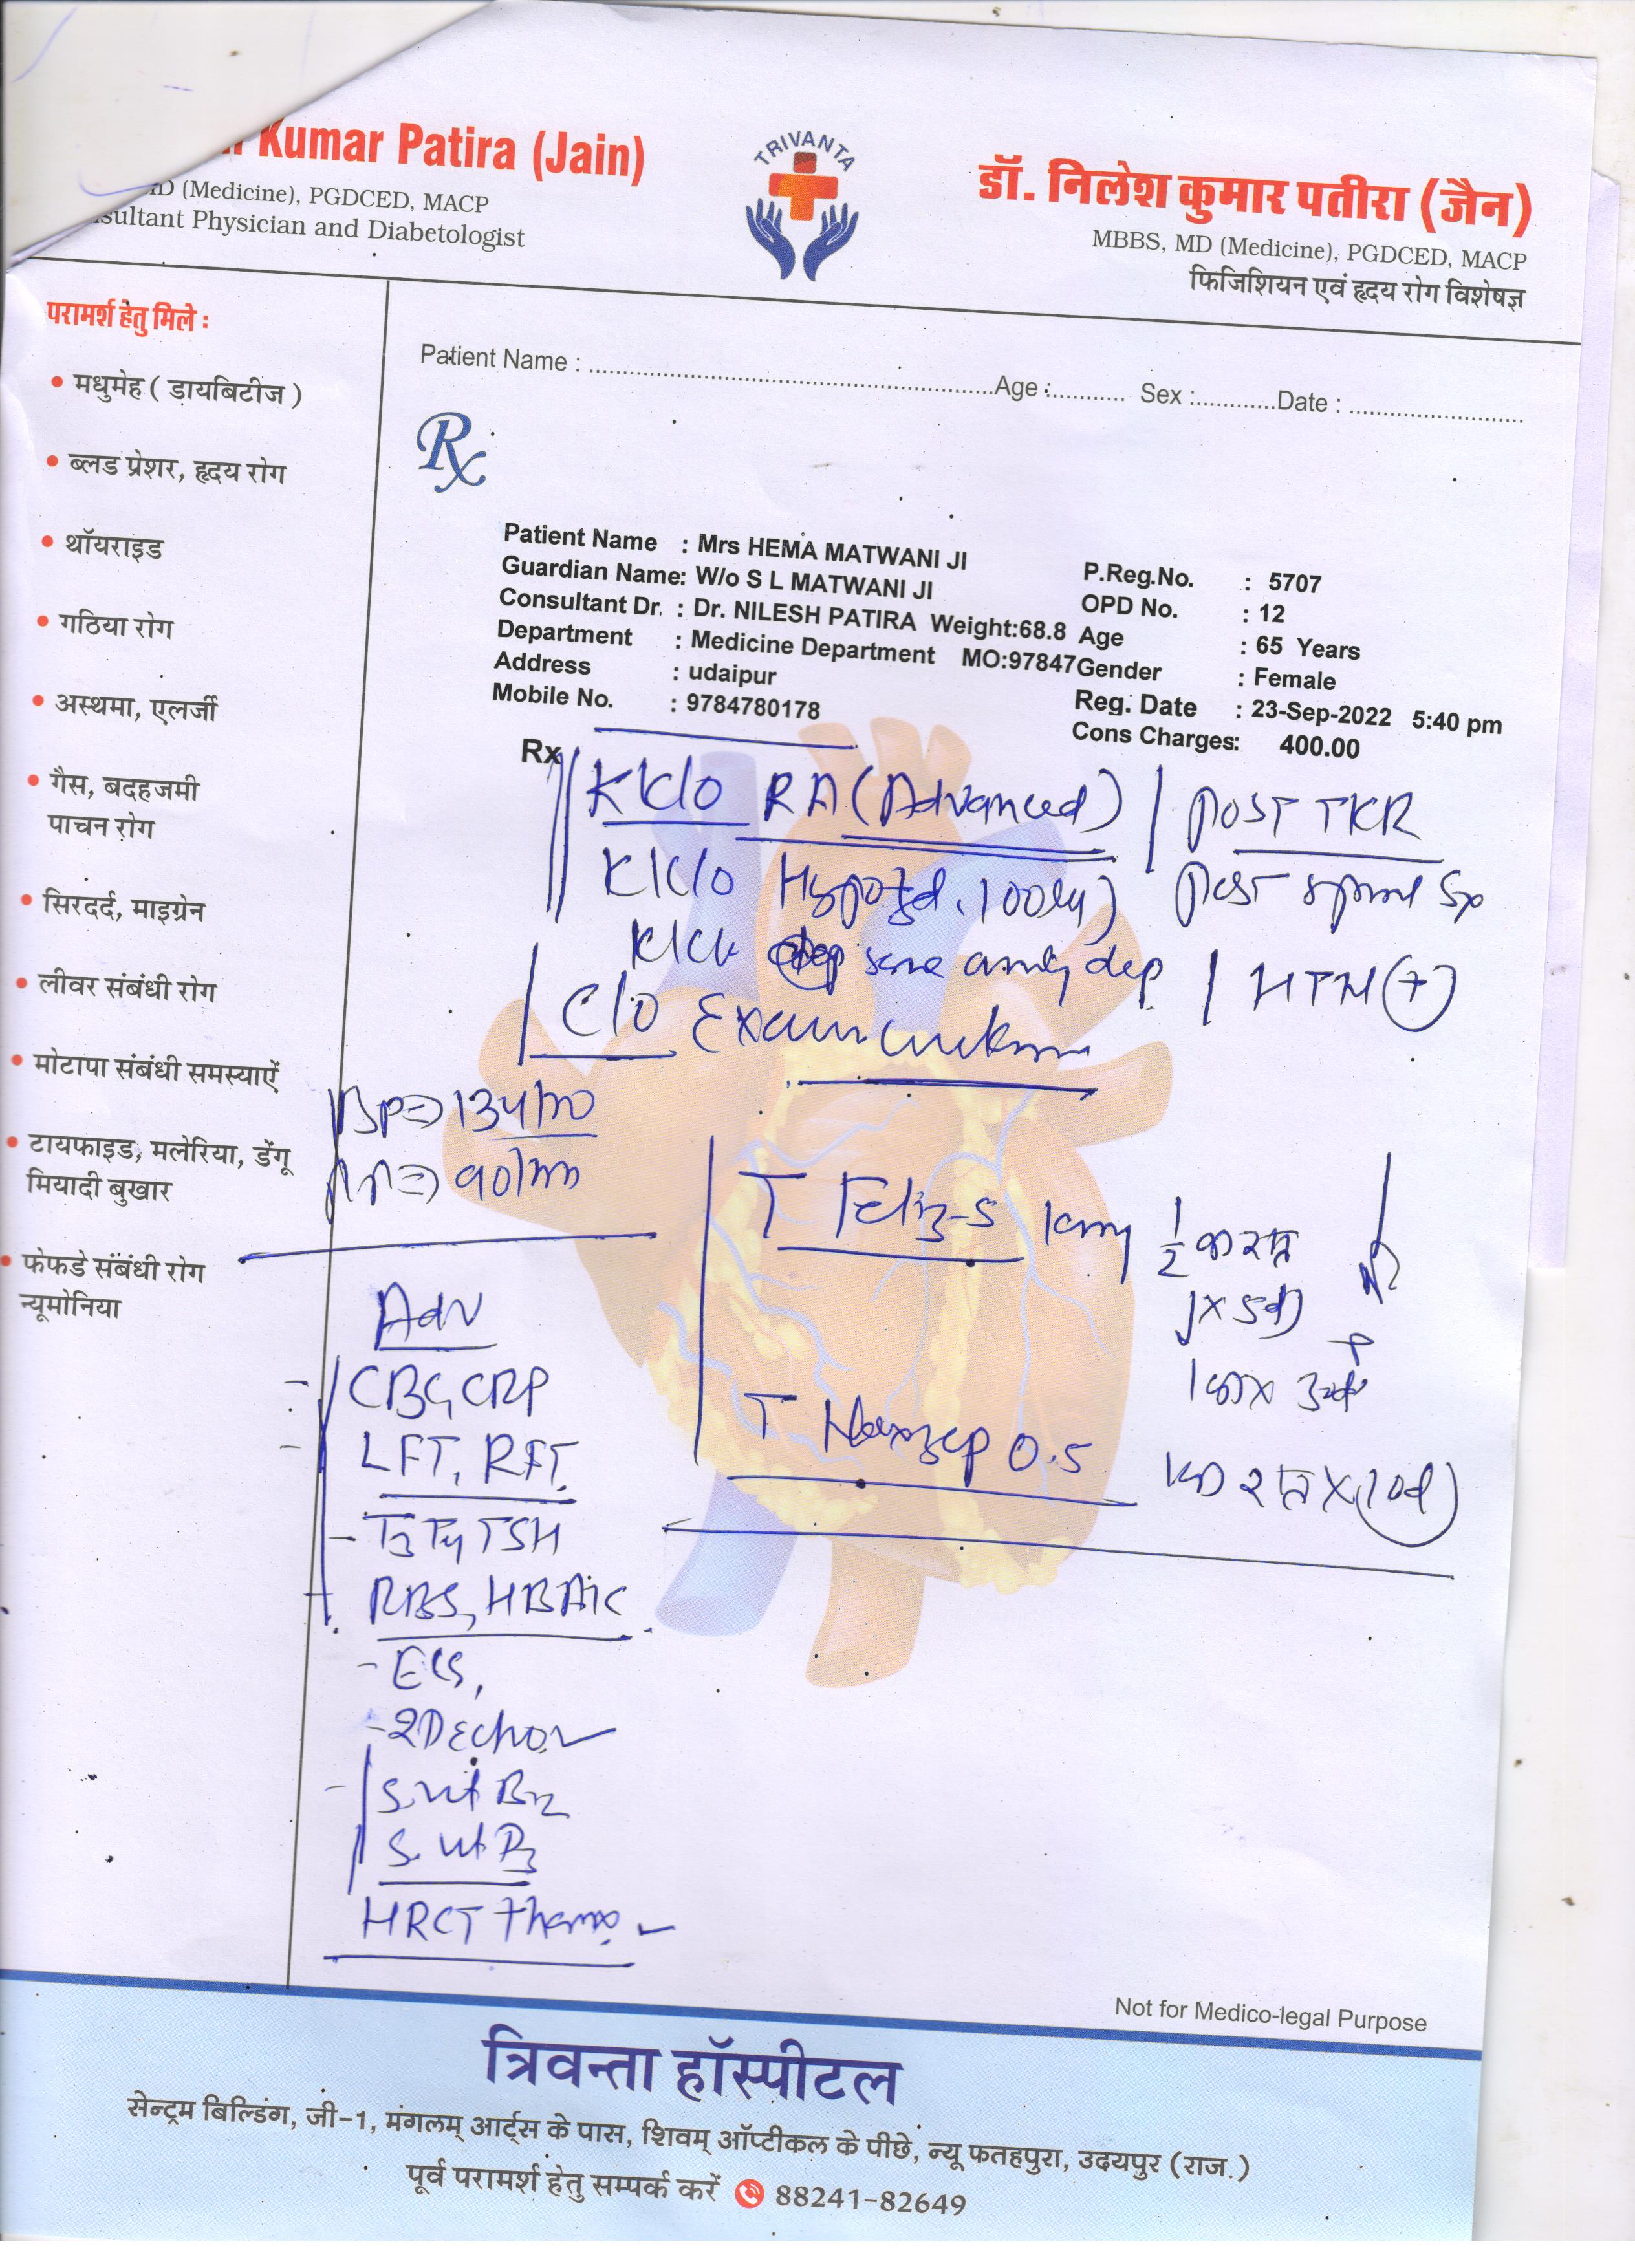 Kumar Patira (Jain)
(Medicine), PGDCED, MACP
sultant Physician and Diabetologist
TRIVANTA
डॉ. निलेश कुमार पतीरा (जैन)
MBBS, MD (Medicine), PGDCED, MACP
फिजिशियन एवं हृदय रोग विशेषज्ञ
परामर्श हेतु मिले :
• मधुमेह ( डायबिटीज )
• ब्लड प्रेशर, हृदय रोग
• थॉयराइड
• गठिया रोग
• अस्थमा, एलर्जी
• गैस, बदहजमी
पाचन रोग
• सिरदर्द, माइग्रेन
• लीवर संबंधी रोग
• मोटापा संबंधी समस्याऐं
• टायफाइड, मलेरिया, डेंगू
मियादी बुखार
• फेफडे संबंधी रोग
न्यूमोनिया
Patient Name : Age : Sex : Date :
Rx
Patient Name : Mrs HEMA MATWANI JI P.Reg.No. : 5707
Guardian Name: W/o S L MATWANI JI OPD No. : 12
Consultant Dr. : Dr. NILESH PATIRA Weight:68.8 Age : 65 Years
Department : Medicine Department MO:97847 Gender : Female
Address : udaipur Reg. Date : 23-Sep-2022 5:40 pm
Mobile No. : 9784780178 Cons Charges: 400.00
Rx
K/C/O RA (Advanced) / POST TKR
K/C/O 100 POST
dep / HTN (+)
C/O
BP => 134/
=> 90/
T 10mg 1/2
x 5d
T 0.5 x (10d)
Adv
- CBC, CRP
- LFT, RFT
- T3 T4 TSH
- RBS, HBA1C
- ECG,
- 2D Echo
- S. vit B12
S. vit D3
HRCT Thorax
Not for Medico-legal Purpose
त्रिवन्ता हॉस्पीटल
सेन्ट्रम बिल्डिंग, जी-1, मंगलम् आर्ट्स के पास, शिवम् ऑप्टीकल के पीछे, न्यू फतहपुरा, उदयपुर (राज.)
पूर्व परामर्श हेतु सम्पर्क करें 88241-82649